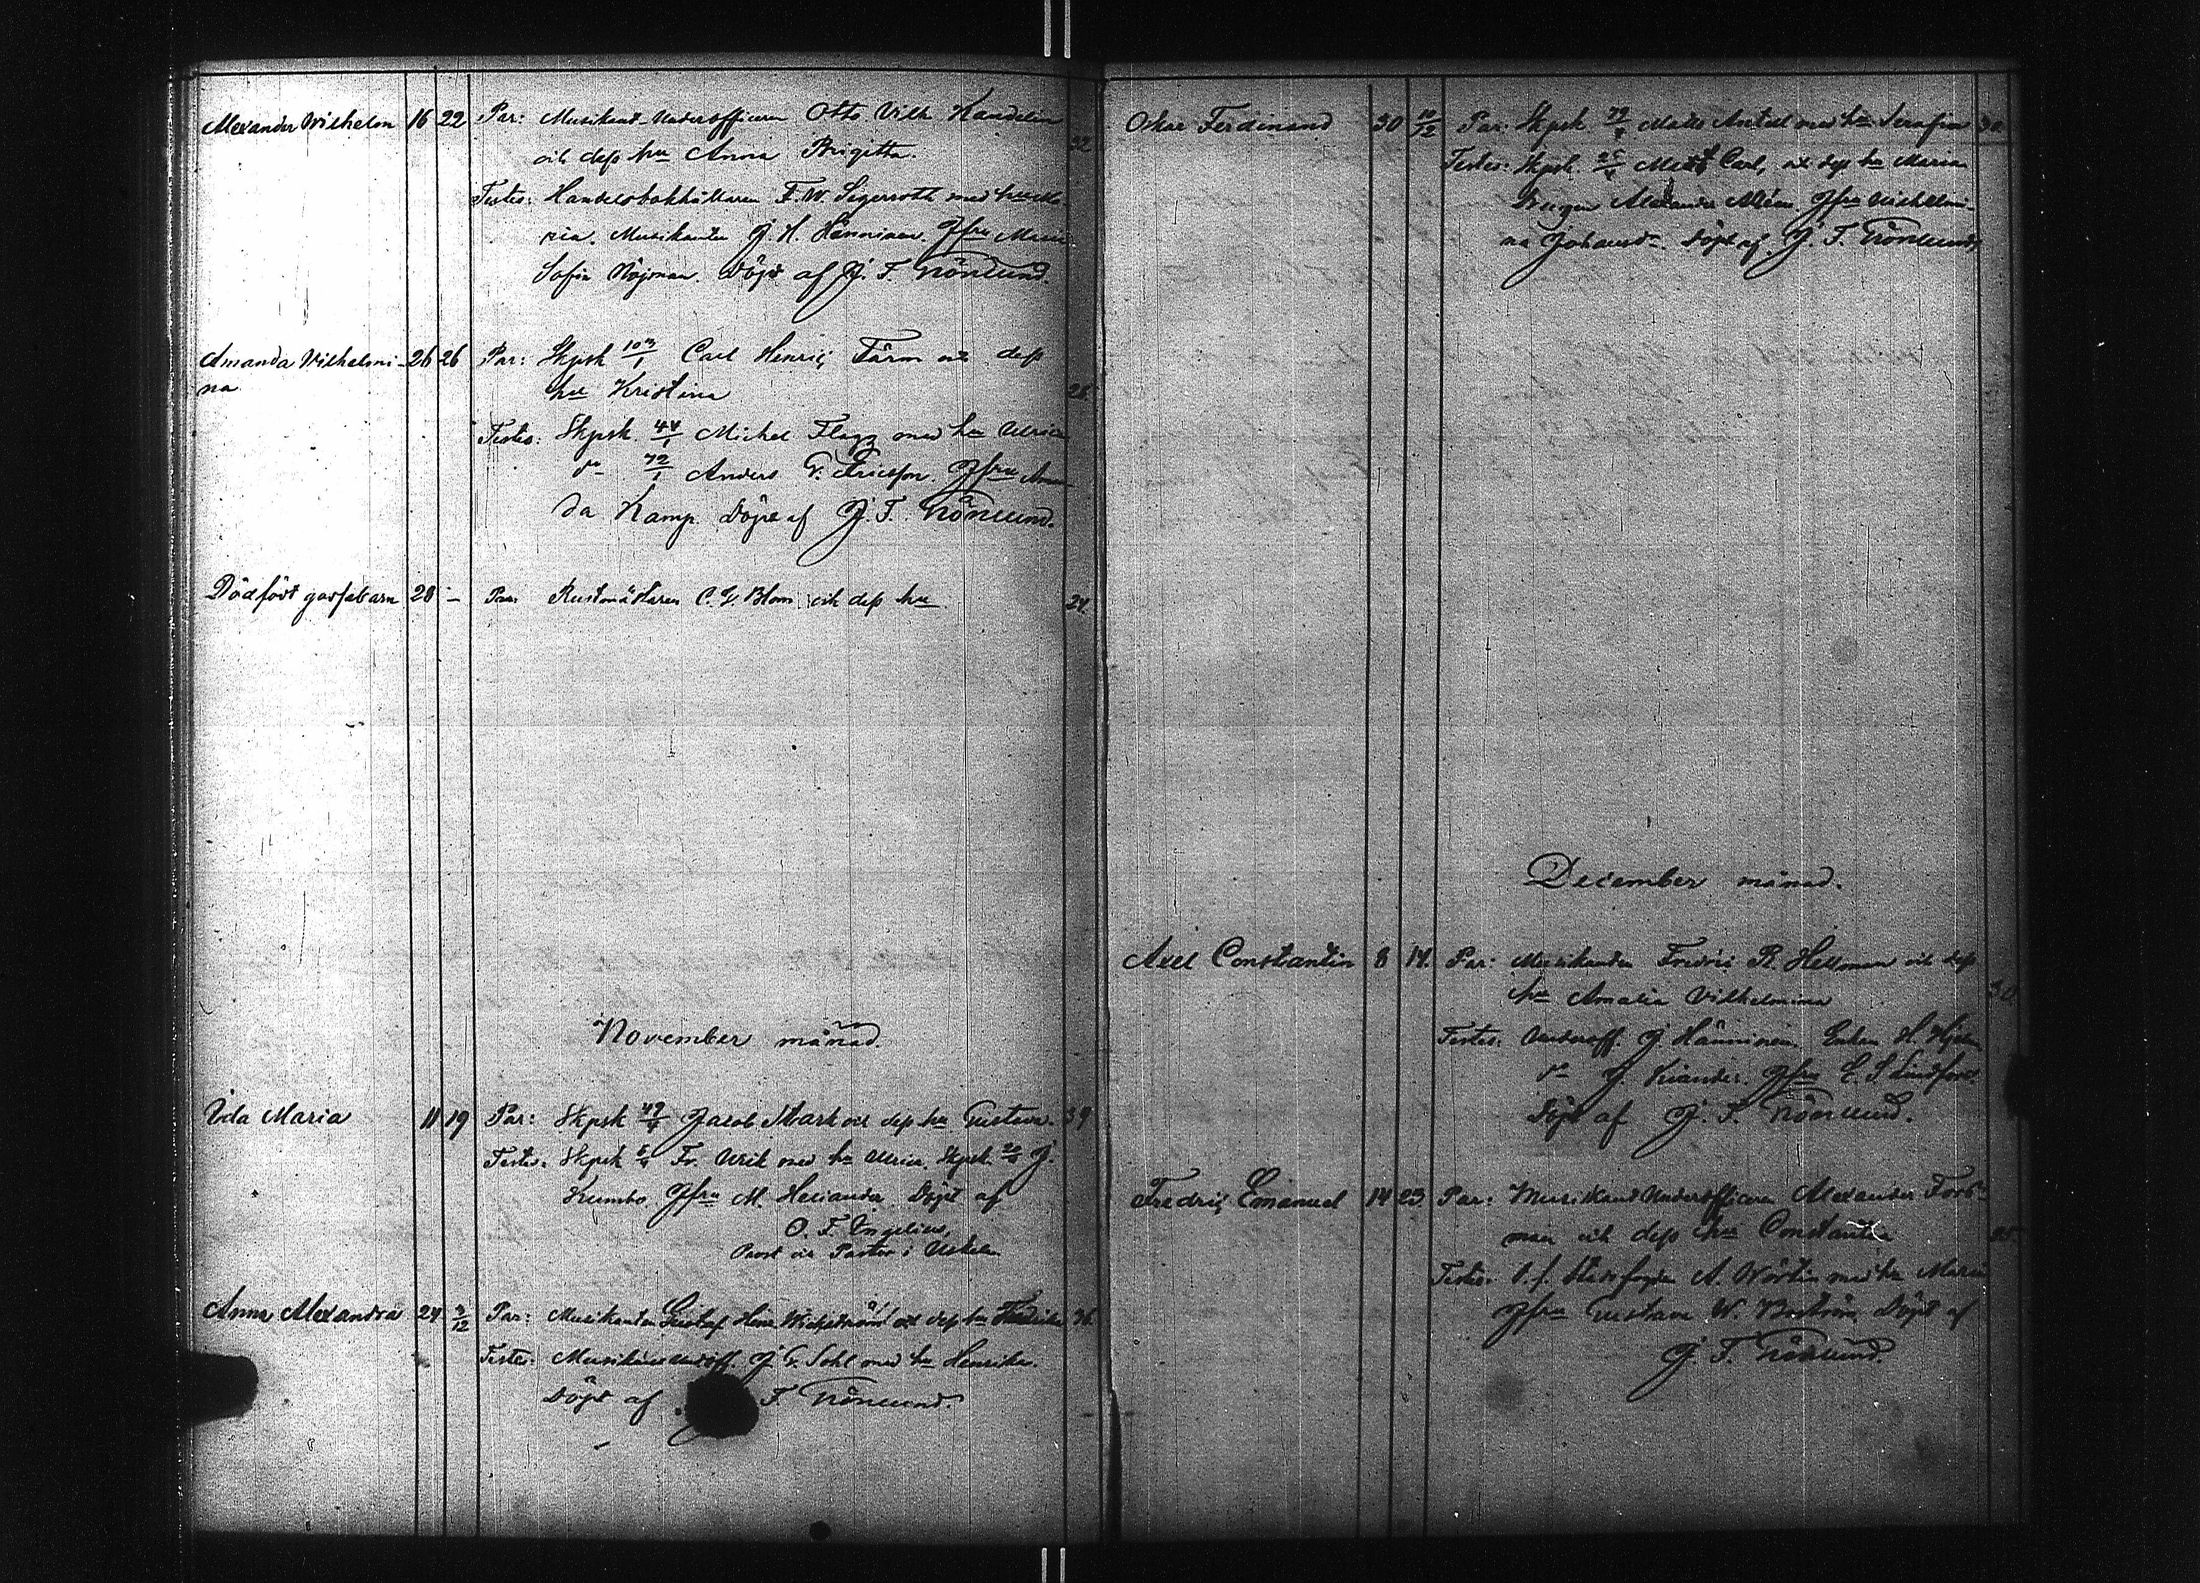 Alexander Wilhelm 16 22 Par: Musikant Underofficeren Otto Vilh. Kandelin
och dess hu Anna Brigitta. 32
Testes: Handelsbokhållaren F. W. Segerroth med hu Ma-
ria. Musikanten J. H. Hänninen. Jfru Maria
Sofia Nyman. Döpt af J. F. Grönlund.
Amanda Vilhelmi- 26 26 Par: Skpsk 103/1 Carl Henric Färm och dess
na hu Kristina 28
Testes: Skpsk. 44/1 Michel Flagg med hu Ulrica
do 72/1 Anders G. Ericsson. Jfru Aman-
da Kamp. Döpt af J. F. Grönlund.
Dödfödt gossebarn 28 – Par: Rustmästaren C. G. Blom och dess hu. 24.
November månad.
Ida Maria 11 19 Par: Skpsk 49/4 Jacob Stark och dess hu Gustava. 34
Testes: Skpsk Fr. Urik med hu Ulrica. Skpsk. J.
Kumbo. Jfru M. Heliander. Döpt af
O. F. Ingelius,
Prost och Pastor i Uskela
Anna Alexandra 24 3/12 Par: Musikanten Gustaf Henr. Wickström och dess hu Fredrika 36
Testes: Musikant Undoff. J. G. Sohl med hu Henrika.
Döpt af F. Grönlund.
Oskar Ferdinand 30 10/12 Par: Skpsk 79/ Matts Antel med hu Serafina 30.
Testes: Skpsk. 25/ Matts Carl, och dess hu Maria
Drngen Alexander Alén. Jfru Vilhelmi-
na Johansdr. Döpt af J. F. Grönlund.
December månad.
Axel Constantin 8 14. Par: Musikanten Fredric R. Hellman och dess
hu Amalia Vilhelmina 30.
Testes: Underoff. J. Hänninen. H.
do J. Kiander. Jfru E. S. Lindfors.
Döpt af J. F. Grönlund.
Fredric Emanuel 14 23. Par: Musikant Underofficeren Alexander Fors-
man och dess hu Constantia 25.
Testes: Stadsfogden A. Wörtin med hu Maria
Jfru Gustava W. Boström. Döpt af
J. F. Grönlund.